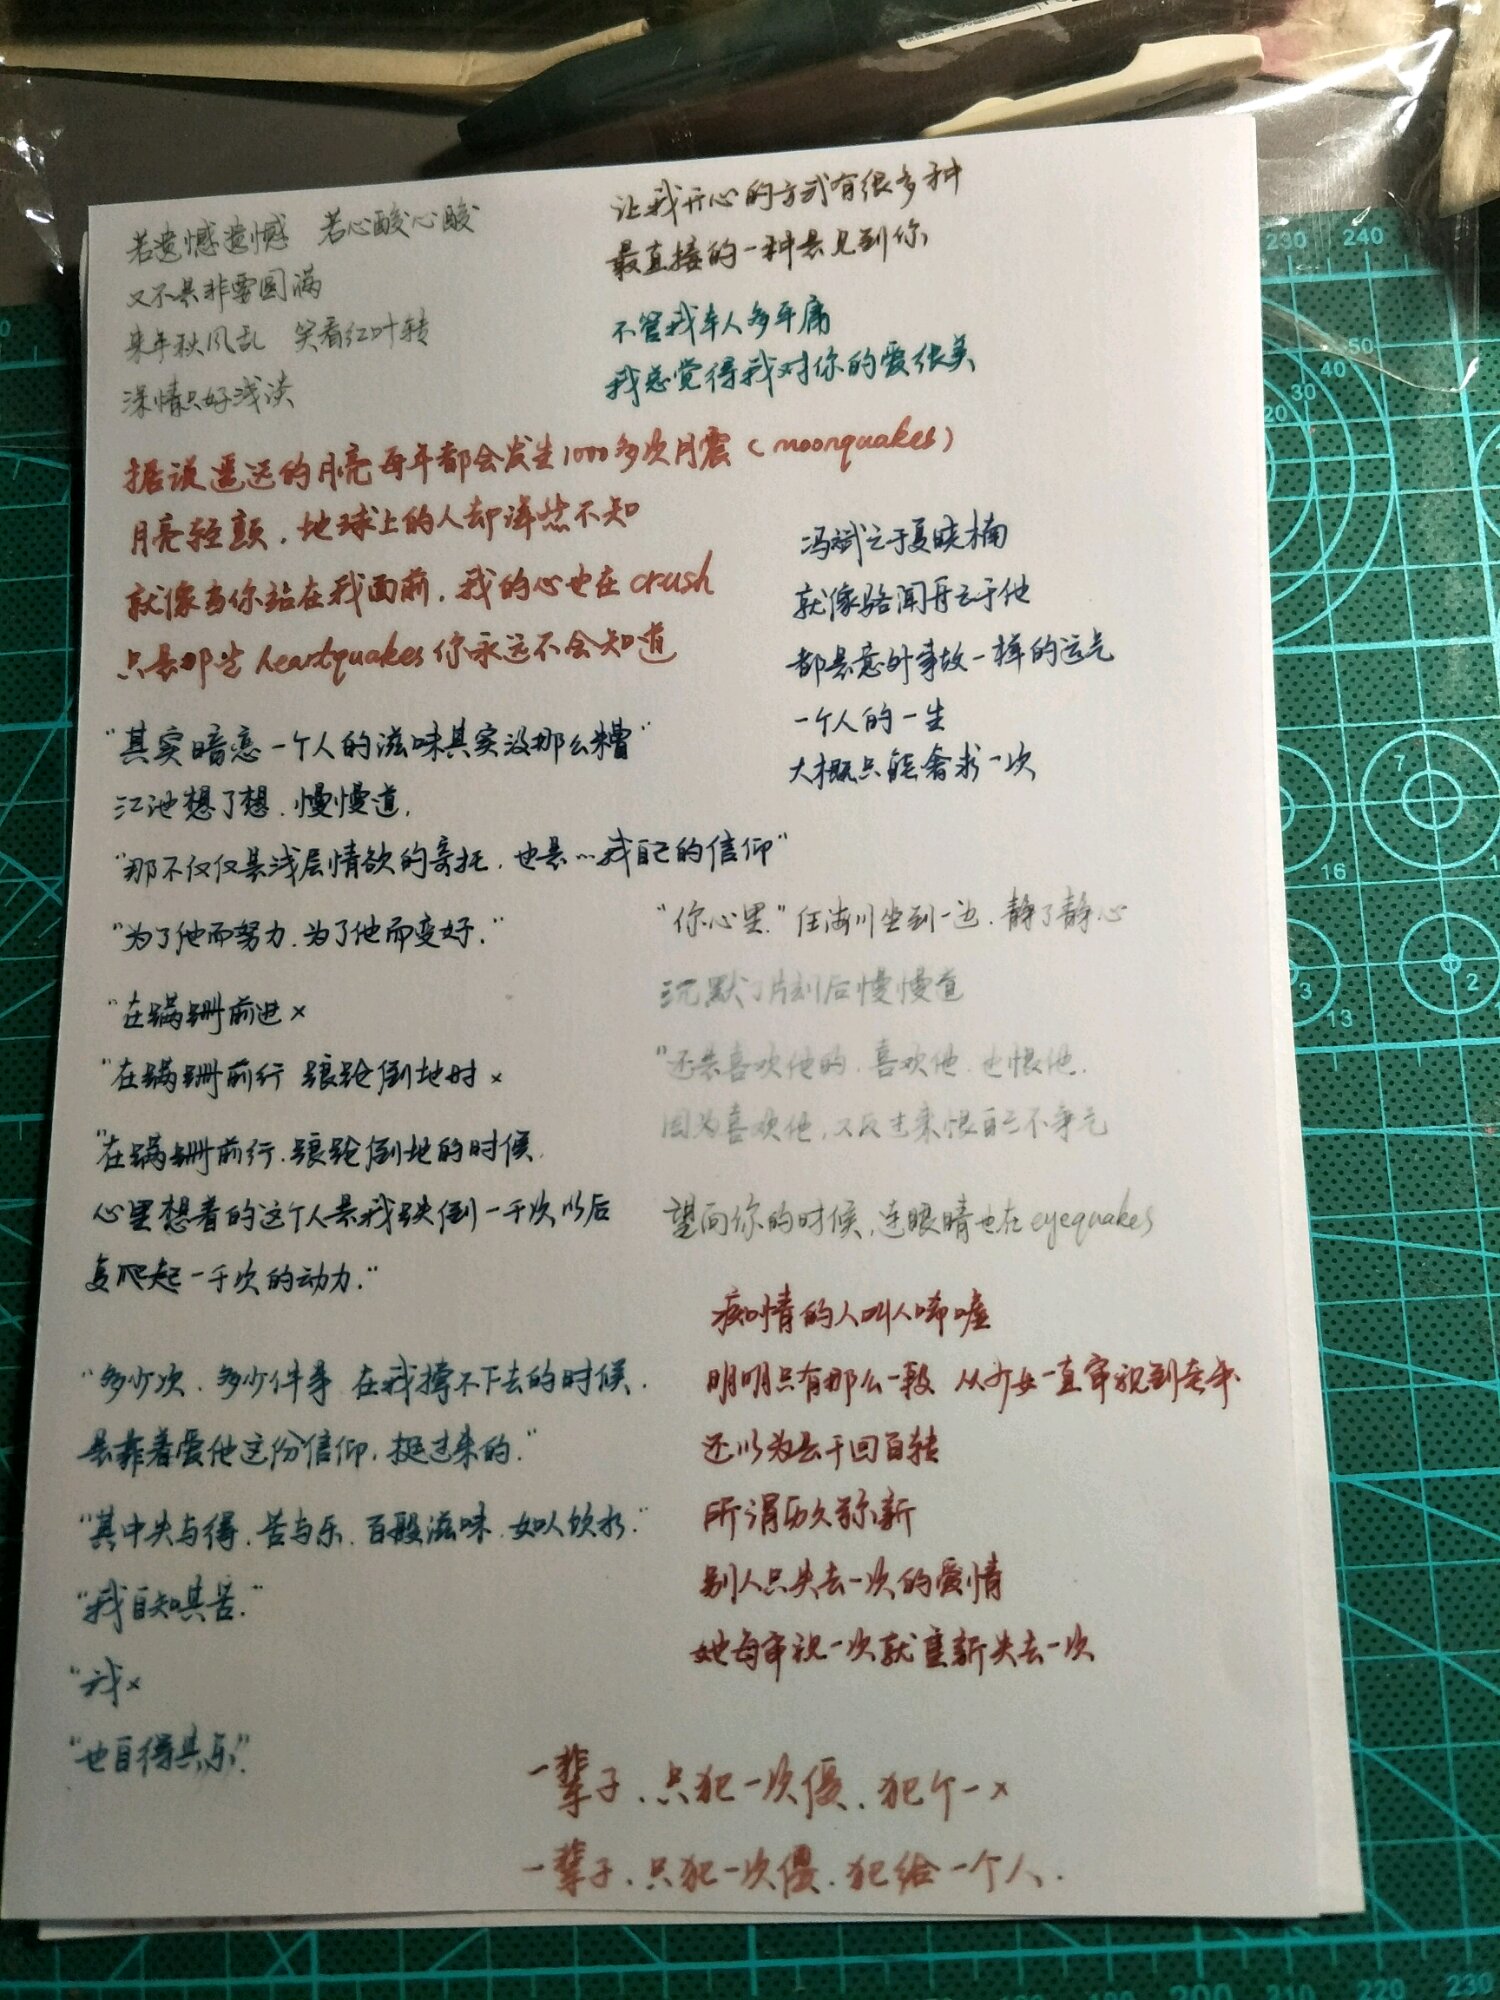 若遗憾遗憾 若心酸心酸
又不是非要圆满
来年秋风乱 笑看红叶转
深情只好浅谈
让我开心的方式有很多种
最直接的一种是见到你
不管我本人多平庸
我总觉得我对你的爱很美
据说遥远的月亮每年都会发生1000多次月震(moonquakes)
月亮轻颤,地球上的人却浑然不知
就像当你站在我面前,我的心也在crush
只是那些heartquakes你永远不会知道
冯斌之于夏晓楠
就像骆闻舟之于他
都是意外事故一样的运气
一个人的一生
大概只能奢求一次
"其实暗恋一个人的滋味其实没那么糟"
江池想了想,慢慢道,
"那不仅仅是浅层情欲的寄托,也是…我自己的信仰"
"为了他而努力,为了他而变好."
"在蹒跚前进×
"在蹒跚前行 踉跄倒地时×
"在蹒跚前行,踉跄倒地的时候,
心里想着的这个人是我跌倒一千次以后
复爬起一千次的动力."
"你心里."任海川坐到一边,静了静心
沉默了片刻后慢慢道
"还是喜欢他的,喜欢他,也恨他,
因为喜欢他,又反过来恨自己不争气
望向你的时候,连眼睛也在eyequakes
"多少次,多少件事 在我撑不下去的时候,
是靠着爱他这份信仰,挺过来的."
"其中失与得,苦与乐,百般滋味,如人饮水."
"我自知其苦."
"我×
"也自得其乐."
痴情的人叫人唏嘘
明明只有那么一段 从少女一直审视到老年
还以为是千回百转
所谓历久弥新
别人只失去一次的爱情
她每审视一次就重新失去一次
一辈子,只犯一次傻,犯个一×
一辈子,只犯一次傻,犯给一个人.
230 240
50
40
30
20
7
16
3
2
13
190 200 210 220 230